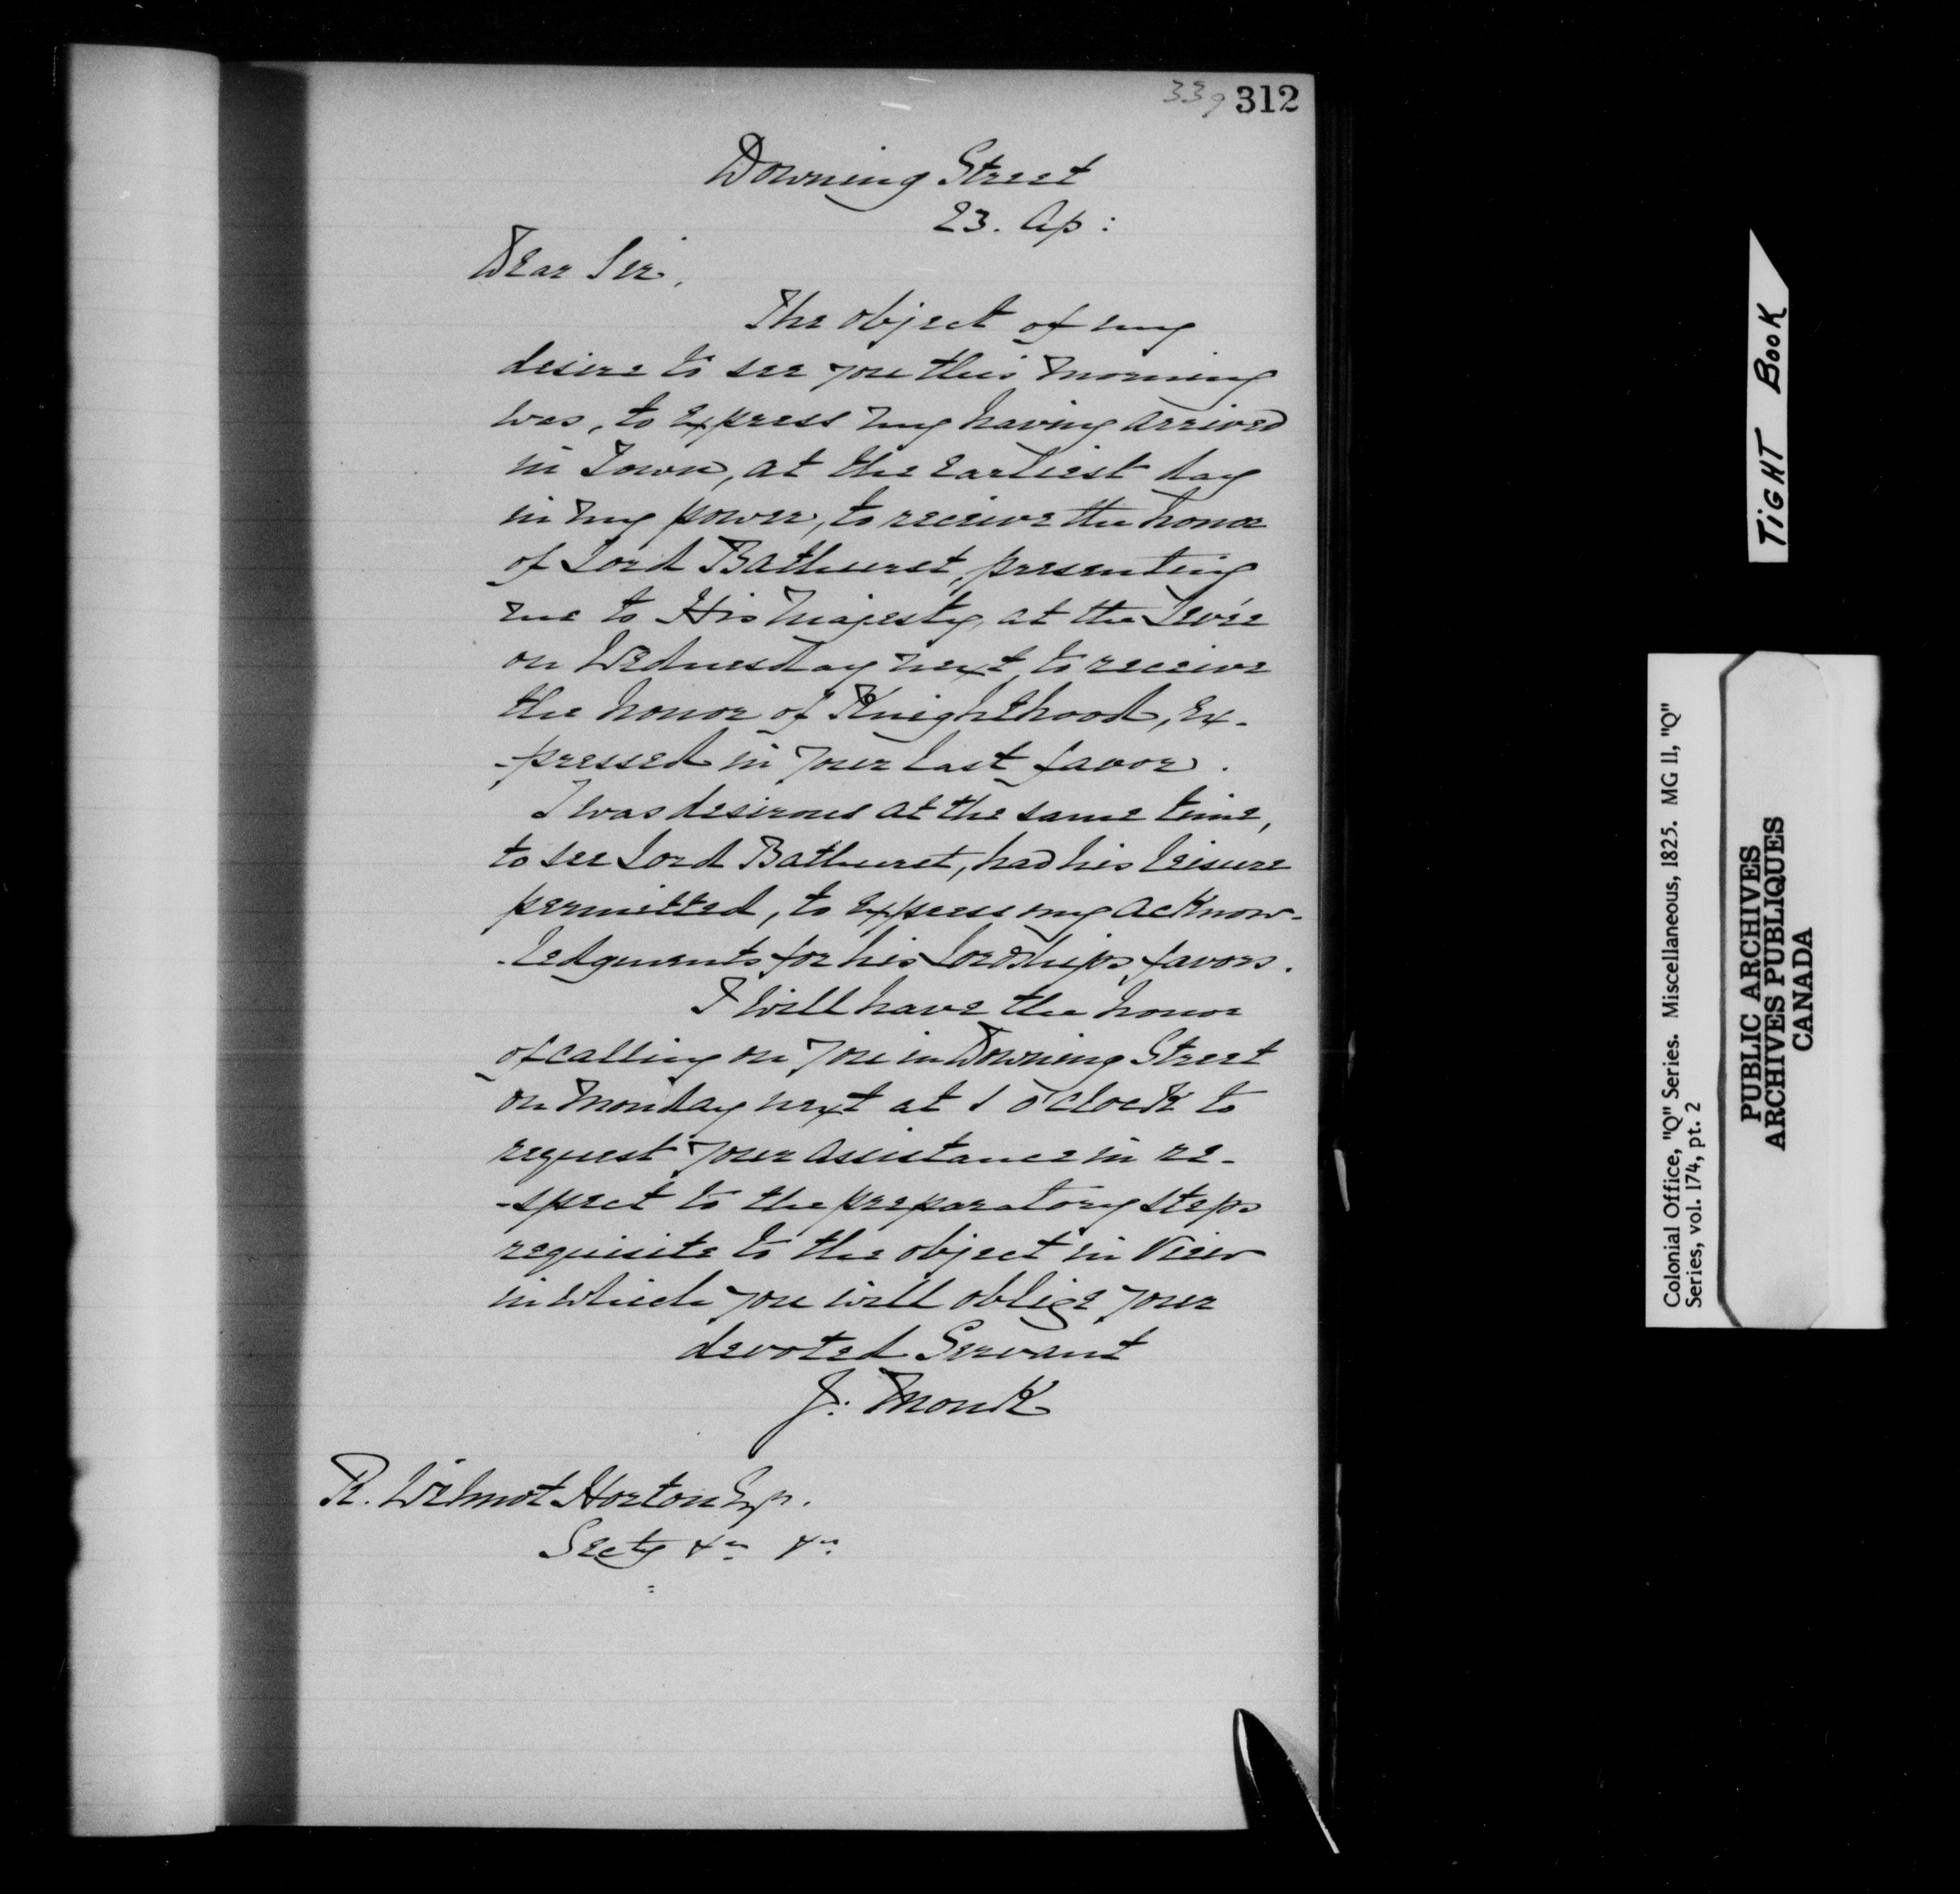 339 312
Downing Street
23. Ap:
Dear Sir,
The object of my
desire to see you this morning
was, to express my having arrived
in Town, at the earliest day
in my power, to receive the honor
of Lord Bathurst, presenting
me to His Majesty, at the Levée
on Wednesday next, to receive
the honor of Knighthood, ex-
-pressed in your last favor.
I was desirous at the same time,
to see Lord Bathurst, had his leisure
permitted, to express my acknow-
-ledgments for his Lordships favors.
I will have the honor
of calling on you in Downing Street
on Monday next at 1 o'clock to
request your assistance in re-
-spect to the preparatory steps
requisite to the object in View
in which you will oblige your
devoted Servant
J: Monk
R. Wilmot Horton Esqr.
Secty &c &c
TIGHT BOOK
Colonial Office, "Q" Series. Miscellaneous, 1825. MG 11, "Q"
Series, vol. 174, pt. 2
PUBLIC ARCHIVES
ARCHIVES PUBLIQUES
CANADA